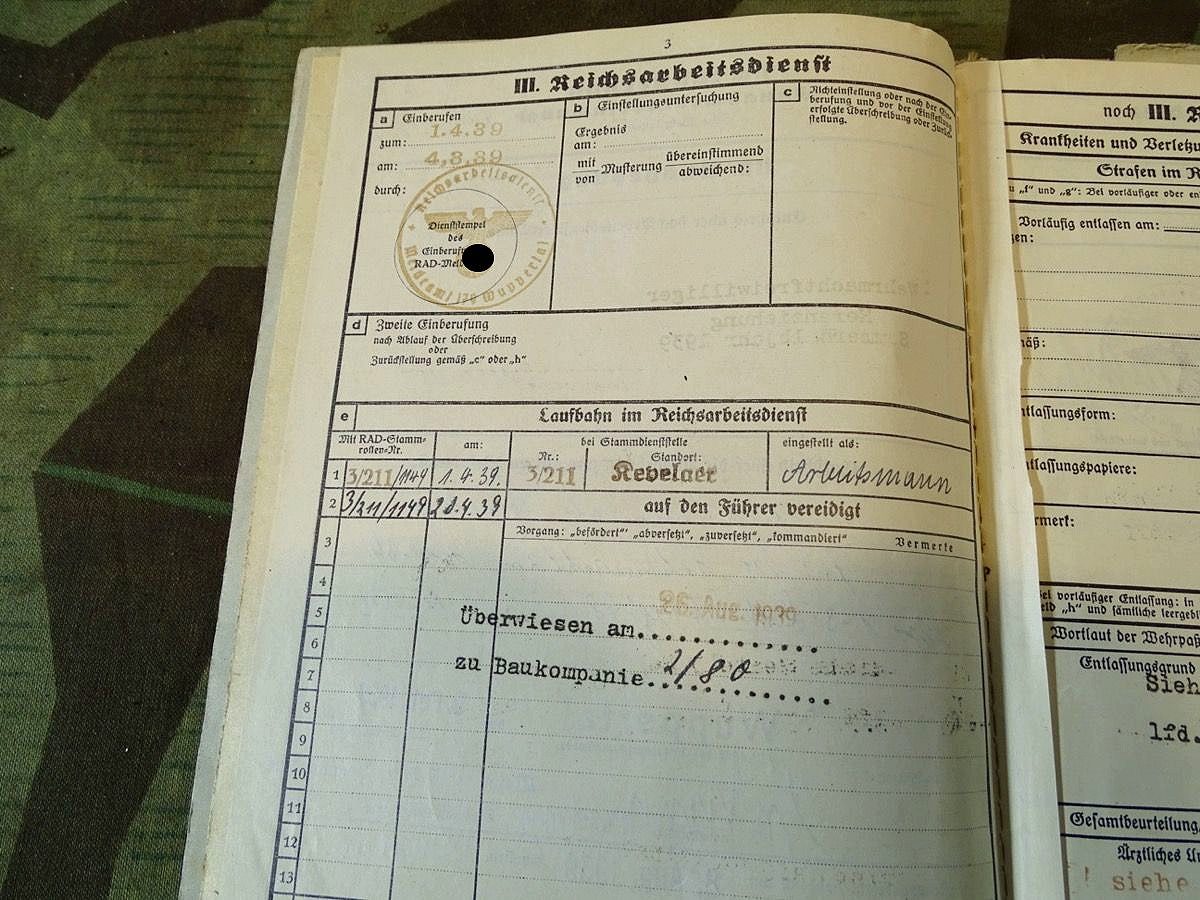 3
III. Reichsarbeitsdienst
a Einberufen
zum: 1.4.39
am: 4.3.39
durch:
Reichsarbeitsdienst
Dienststempel
des
RAD-Mel
Meldeamt 170 Wuppertal
b Einstellungsuntersuchung
Ergebnis
am:
mit
von
Musterung
übereinstimmend
abweichend:
c Nichteinstellung oder nach der Ein-
berufung und vor der Einstellung
erfolgte Überschreibung oder Zurück-
stellung.
d Zweite Einberufung
nach Ablauf der Überschreibung
oder
Zurückstellung gemäß „c" oder „h"
e Laufbahn im Reichsarbeitsdienst
Mit RAD-Stamm-
rollen-Nr.
am:
bei Stammdienststelle
Nr.: Standort:
eingestellt als:
1 3/211/1149 1.4.39. 3/211 Kevelaer Arbeitsmann
2 3/211/1149 20.4.39 auf den Führer vereidigt
Vorgang: „befördert" „abversetzt", „zuversetzt", „kommandiert" Vermerke
3
4
5
Überwiesen am
6
zu Baukompanie 2/80
7
8
9
10
11
12
13
noch III. R
Krankheiten und Verletzu
Strafen im R
u „f" und „g": Bei vorläufiger oder en
Vorläufig entlassen am:
zen:
mäß:
ntlassungsform:
ntlassungspapiere:
rmerk:
Bei vorläufiger Entlassung: in
eld „h" und sämtliche leergebl
Wortlaut der Wehrpaß
Entlassungsgrund
Sieh
lfd.
Gesamtbeurteilung,
Ärztliches U
! siehe